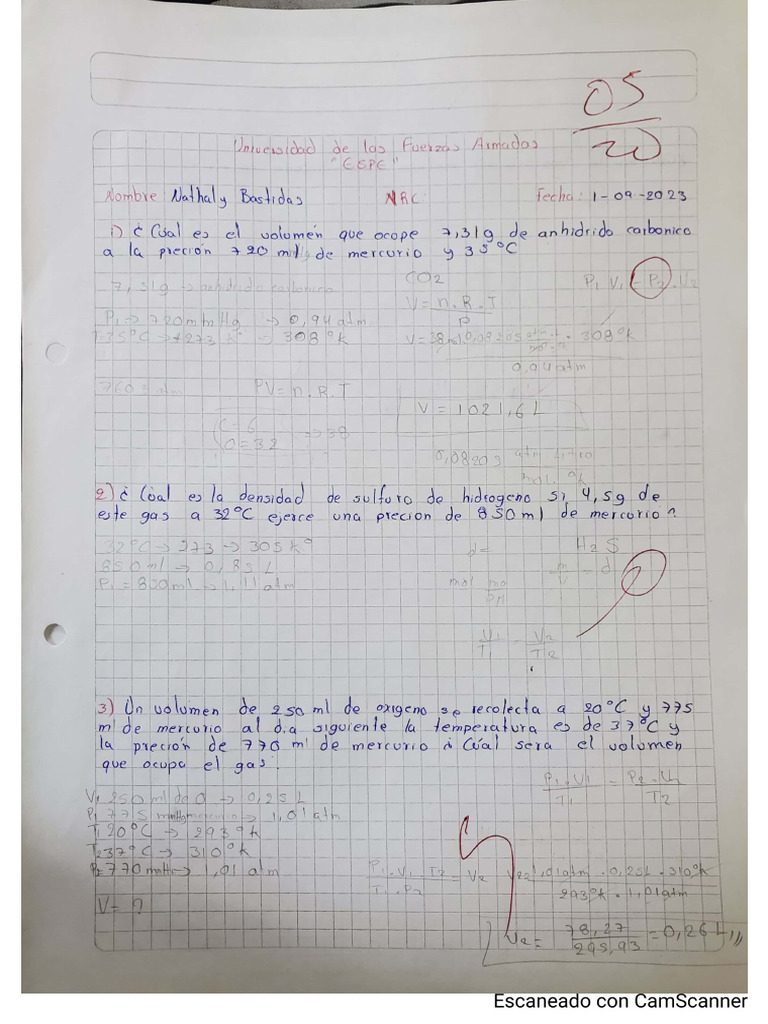 05
20
Universidad de las Fuerzas Armadas
"ESPE"
Nombre: Nathaly Bastidas NRC: Fecha: 1-09-2023
1) ¿Cúal es el volumén que ocope 7,31g de anhidrido carbonico
a la preción 720 ml de mercurio y 35°C
7,31g → anhidrido carbonico CO2 P1 V1 = P2 . V2
P1 → 720 mmHg → 0,94 atm V= n.R.T / P
T=35°C → +273 k → 308°k 308°k
0,94 atm
760 atm PV = n.R.T V = 1021,6 L
C = 6
O = 32 => 38
mol . °k
2) ¿Cúal es la densidad de sulfuro de hidrogeno si 4,5g de
este gas a 32°C ejerce una precion de 850 ml de mercurio?
32°C → 273 → 305 k° d= H2S
850 ml → 0,85 L m/V = d
P1 = 850 ml → 1,11 atm mol
V1/T1 = V2/T2
3) Un volumen de 250 ml de oxigeno se recolecta a 20°C y 775
ml de mercurio al dia siguiente la temperatura es de 37°C y
la preción de 770 ml de mercurio ¿Cúal sera el volumen
que ocupa el gas?
P1 . V1 / T1 = P2 . V2 / T2
V1 250 ml de O → 0,25 L
P1 775 → 1,01 atm
T1 20°C → 293°k
T2 37°C → 310°k
P2 770 mmH → 1,01 atm P1 . V1 . T2 / T1 . P2 = V2 V2 = 1,01 atm . 0,25L . 310°k / 293°k . 1,01 atm
V = ?
V2 = 78,27 / 295,93 = 0,26 L
Escaneado con CamScanner